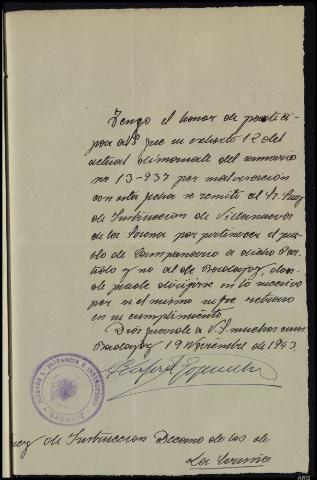 Tengo el honor de partici-
par a V.S. que su exhorto 12 del
actual dimanante del sumario
nº 13-937 por malversación
con esta fecha se remite al Sr. Juez
de Instruccion de Villanueva
de la Serena por pertenecer el pue-
blo de Campanario a dicho Par-
tido y no al de Badajoz, don-
de puede dirigirse en lo sucesivo
por si el mismo sufre retraso
en su cumplimiento.
Dios guarde a V.S. muchos años
Badajoz 19 Noviembre de 1943
JUZGADO 1ª INSTANCIA E INSTRUCCION
BADAJOZ
Juez de Instruccion Decano de los de
La Coruña